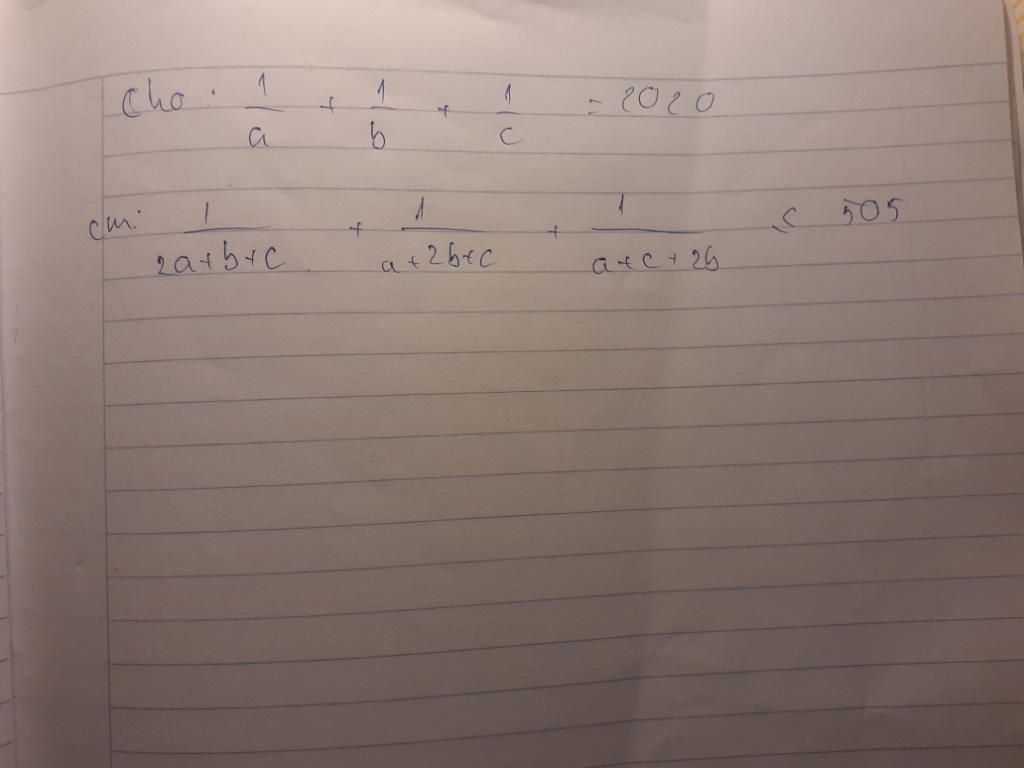 Cho: 1/a + 1/b + 1/c = 2020
cm: 1/(2a+b+c) + 1/(a+2b+c) + 1/(a+c+2b) ≤ 505